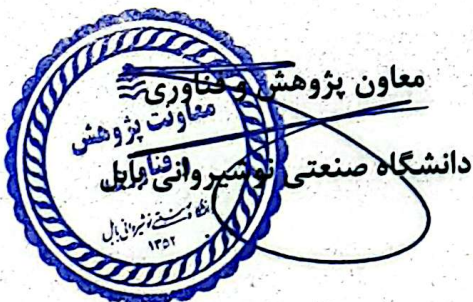 معاون پژوهش و فناوری
دانشگاه صنعتی نوشیروانی بابل
معاونت پژوهش
و فناوری
دانشگاه صنعتی نوشیروانی بابل
۱۳۵۲